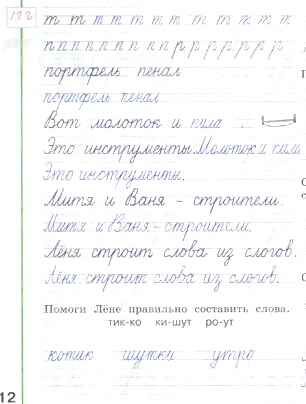 122
т т т т т т т т т т т т т
п п п п п п п п п р р р р р р р р
портфель пенал
портфель пенал
Вот молоток и пила .
Это инструменты. Молоток и пила
Это инструменты.
Митя и Ваня - строители.
Митя и Ваня - строители.
Лёня строит слова из слогов.
Лёня строит слова из слогов.
Помоги Лёне правильно составить слова.
тик-ко ки-шут ро-ут
котик шутки утро
12